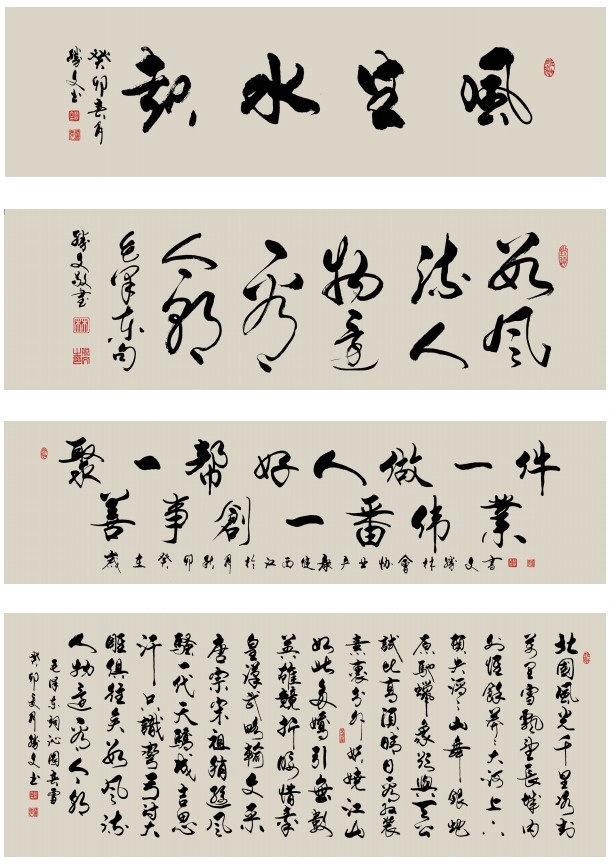 風生水起
癸卯春月
勝文书
数风
流人
物還
看
今朝
毛泽东句
勝文敬書
聚一帮好人做一件
善事創一番伟業
歲在癸卯秋月於江西健康产业协會林勝文書
北國風光千里冰封
萬里雪飘望長城内
外惟餘莽々大河上下
頓失滔々山舞銀蛇
原馳蠟象欲與天公
試比高須晴日看红装
素裹分外妖嬈江山
如此多嬌引無数
英雄競折腰惜秦
皇漢武略輸文采
唐宗宋祖稍遜風
騷一代天驕成吉思
汗只識彎弓射大
雕俱往矣数风流
人物還看今朝
毛泽东詞沁園春雪
癸卯夏月勝文书